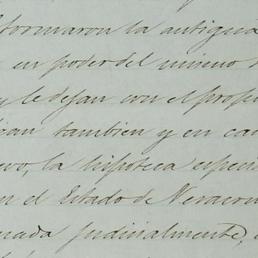 formaron la antigua
en poder del mismo
y le dejan con el prop
tambien y en ca
vo, la hipoteca especi
en el Estado de Veracru
nada judicialmente,